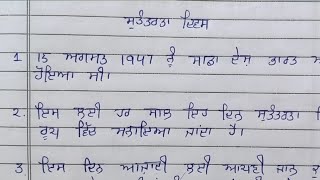 ਸੁਤੰਤਰਤਾ ਦਿਵਸ
1 15 ਅਗਸਤ 1947 ਨੂੰ ਸਾਡਾ ਦੇਸ਼ ਭਾਰਤ ਅ
ਹੋਇਆ ਸੀ।
2. ਇਸ ਲਈ ਹਰ ਸਾਲ ਇਹ ਦਿਨ ਸੁਤੰਤਰਤਾ
ਰੂਪ ਵਿੱਚ ਮਨਾਇਆ ਜਾਂਦਾ ਹੈ।
3 ਇਸ ਦਿਨ ਆਜ਼ਾਦੀ ਲਈ ਆਪਣੀ ਜਾਨ